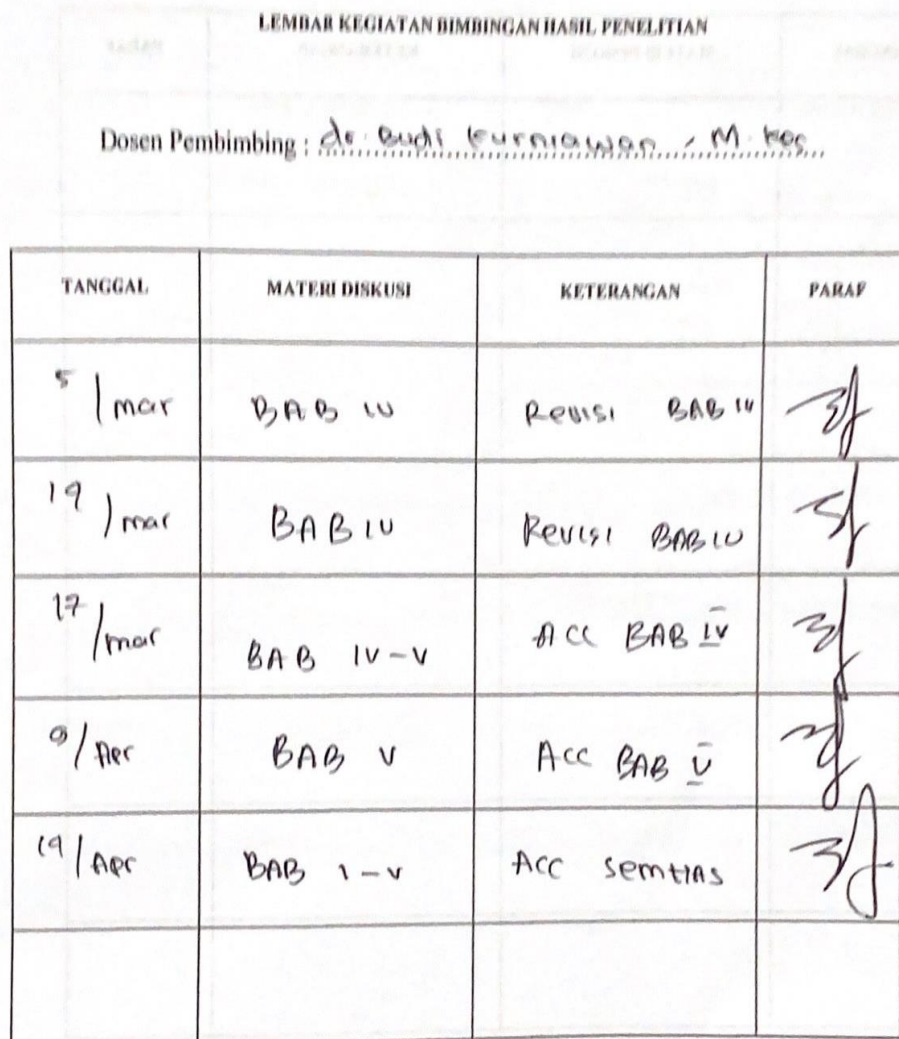 LEMBAR KEGIATAN BIMBINGAN HASIL PENELITIAN
Dosen Pembimbing : dr. Budi Kurniawan, M. Kes
TANGGAL MATERI DISKUSI KETERANGAN PARAF
5/mar BAB IV Revisi BAB IV
/mar BAB IV Revisi BAB IV
17/mar BAB IV-V ACC BAB IV
9/Apr BAB V ACC BAB V
19/Apr BAB I-V ACC